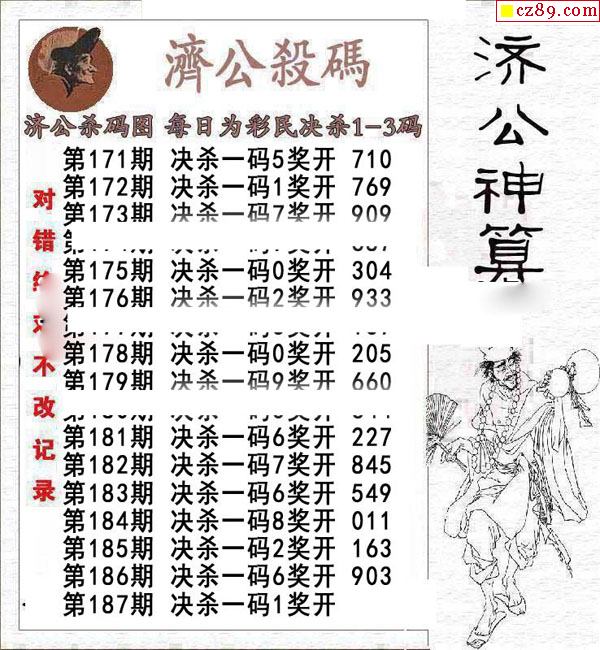 cz89.com
濟公殺碼
济公杀码图 每日为彩民决杀1-3码
第171期 决杀一码5奖开 710
第172期 决杀一码1奖开 769
第173期 决杀一码7奖开 909
第175期 决杀一码0奖开 304
第176期 决杀一码2奖开 933
第178期 决杀一码0奖开 205
第179期 决杀一码9奖开 660
第181期 决杀一码6奖开 227
第182期 决杀一码7奖开 845
第183期 决杀一码6奖开 549
第184期 决杀一码8奖开 011
第185期 决杀一码2奖开 163
第186期 决杀一码6奖开 903
第187期 决杀一码1奖开
对错 不改记录
济公神算